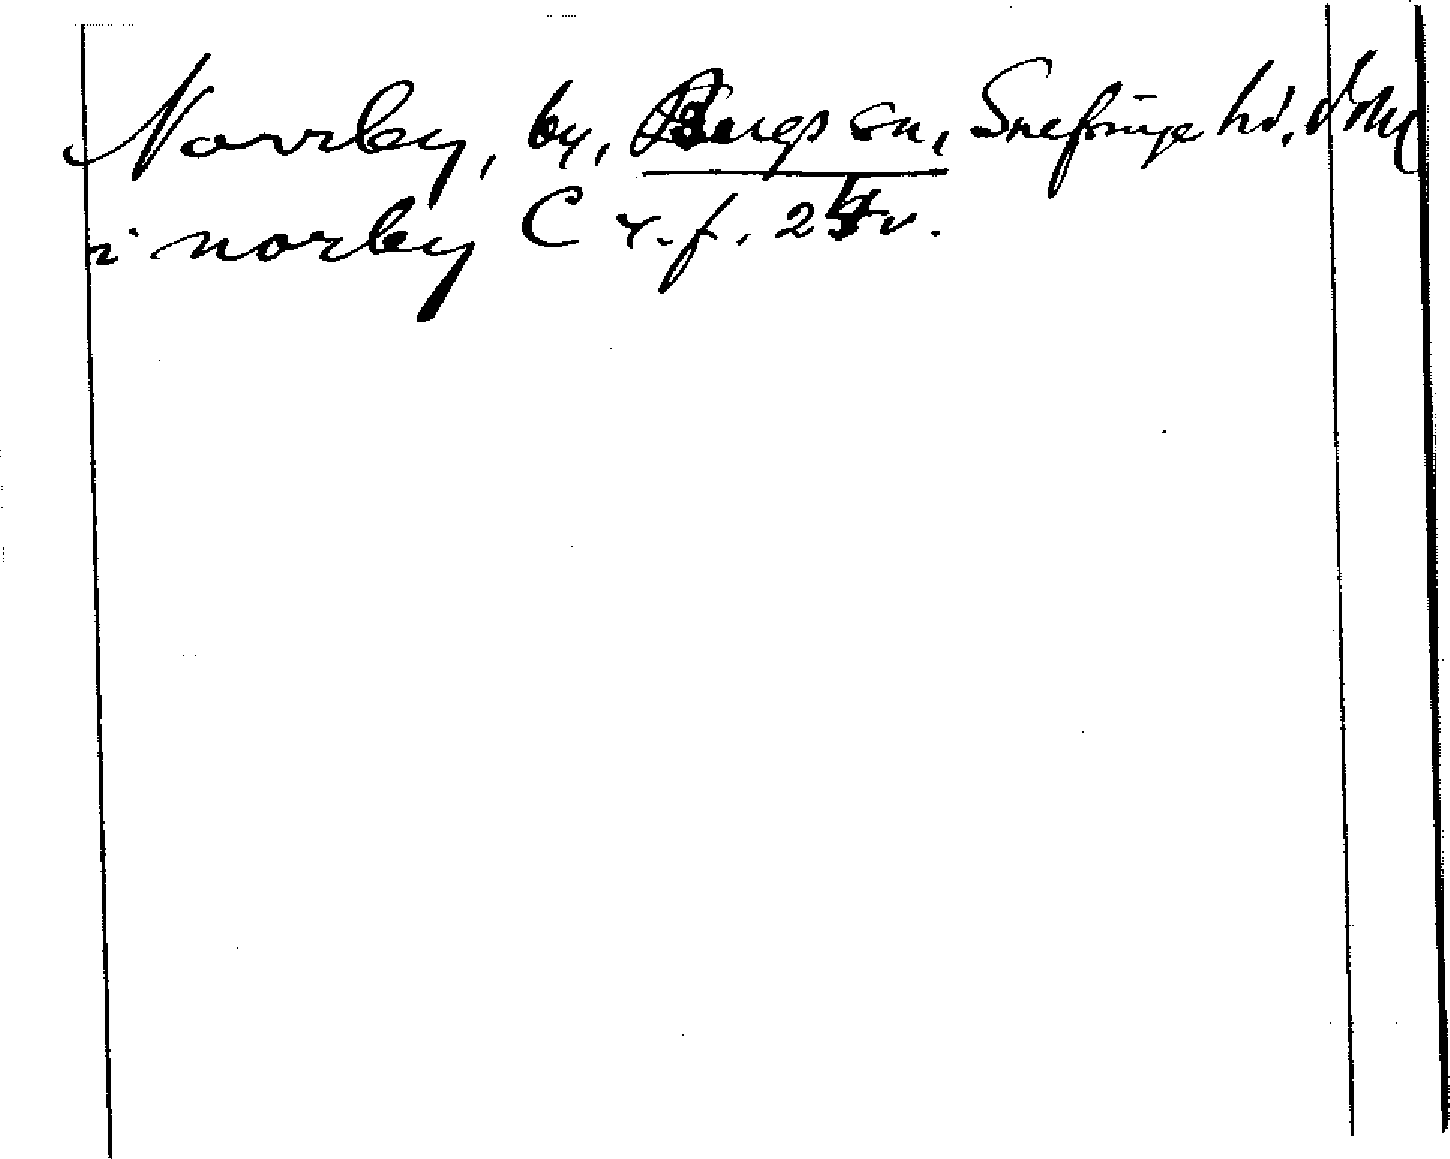 Norrby, by, Bergs sn, Snefringe hd. Vstml
i norby C Y. f. 25 v.